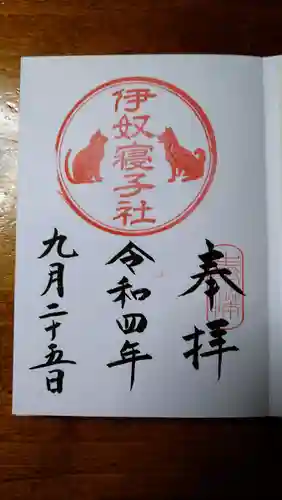 奉拝
伊奴寝子社
令和四年
九月二十五日